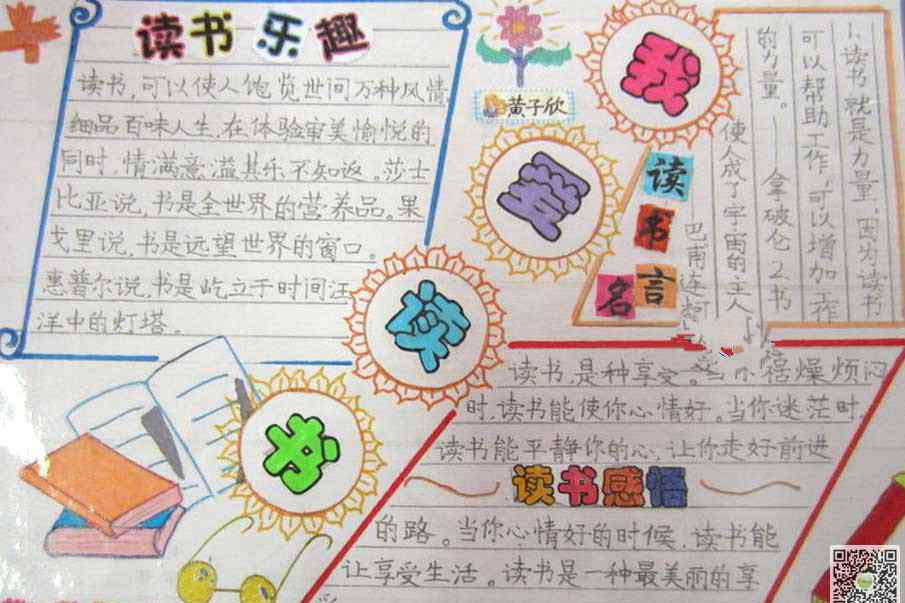 读书乐趣
读书,可以使人饱览世间万种风情,
细品百味人生,在体验审美愉悦的
同时,情满意溢其乐不知返。莎士
比亚说,书是全世界的营养品。果
戈里说,书是远望世界的窗口。
惠普尔说,书是屹立于时间汪
洋中的灯塔。
黄子欣
我
爱
读
书
读书名言
1、读书就是力量,因为读书
可以帮助工作,可以增加工作
的力量。 拿破仑 2.书
使人成了宇宙的主人
巴甫连柯
读书,是种享受。当你 燥烦闷
时,读书能使你心情好。当你迷茫时,
读书能平静你的心,让你走好前进
读书感悟
的路。当你心情好的时候,读书能
让享受生活。读书是一种最美丽的享